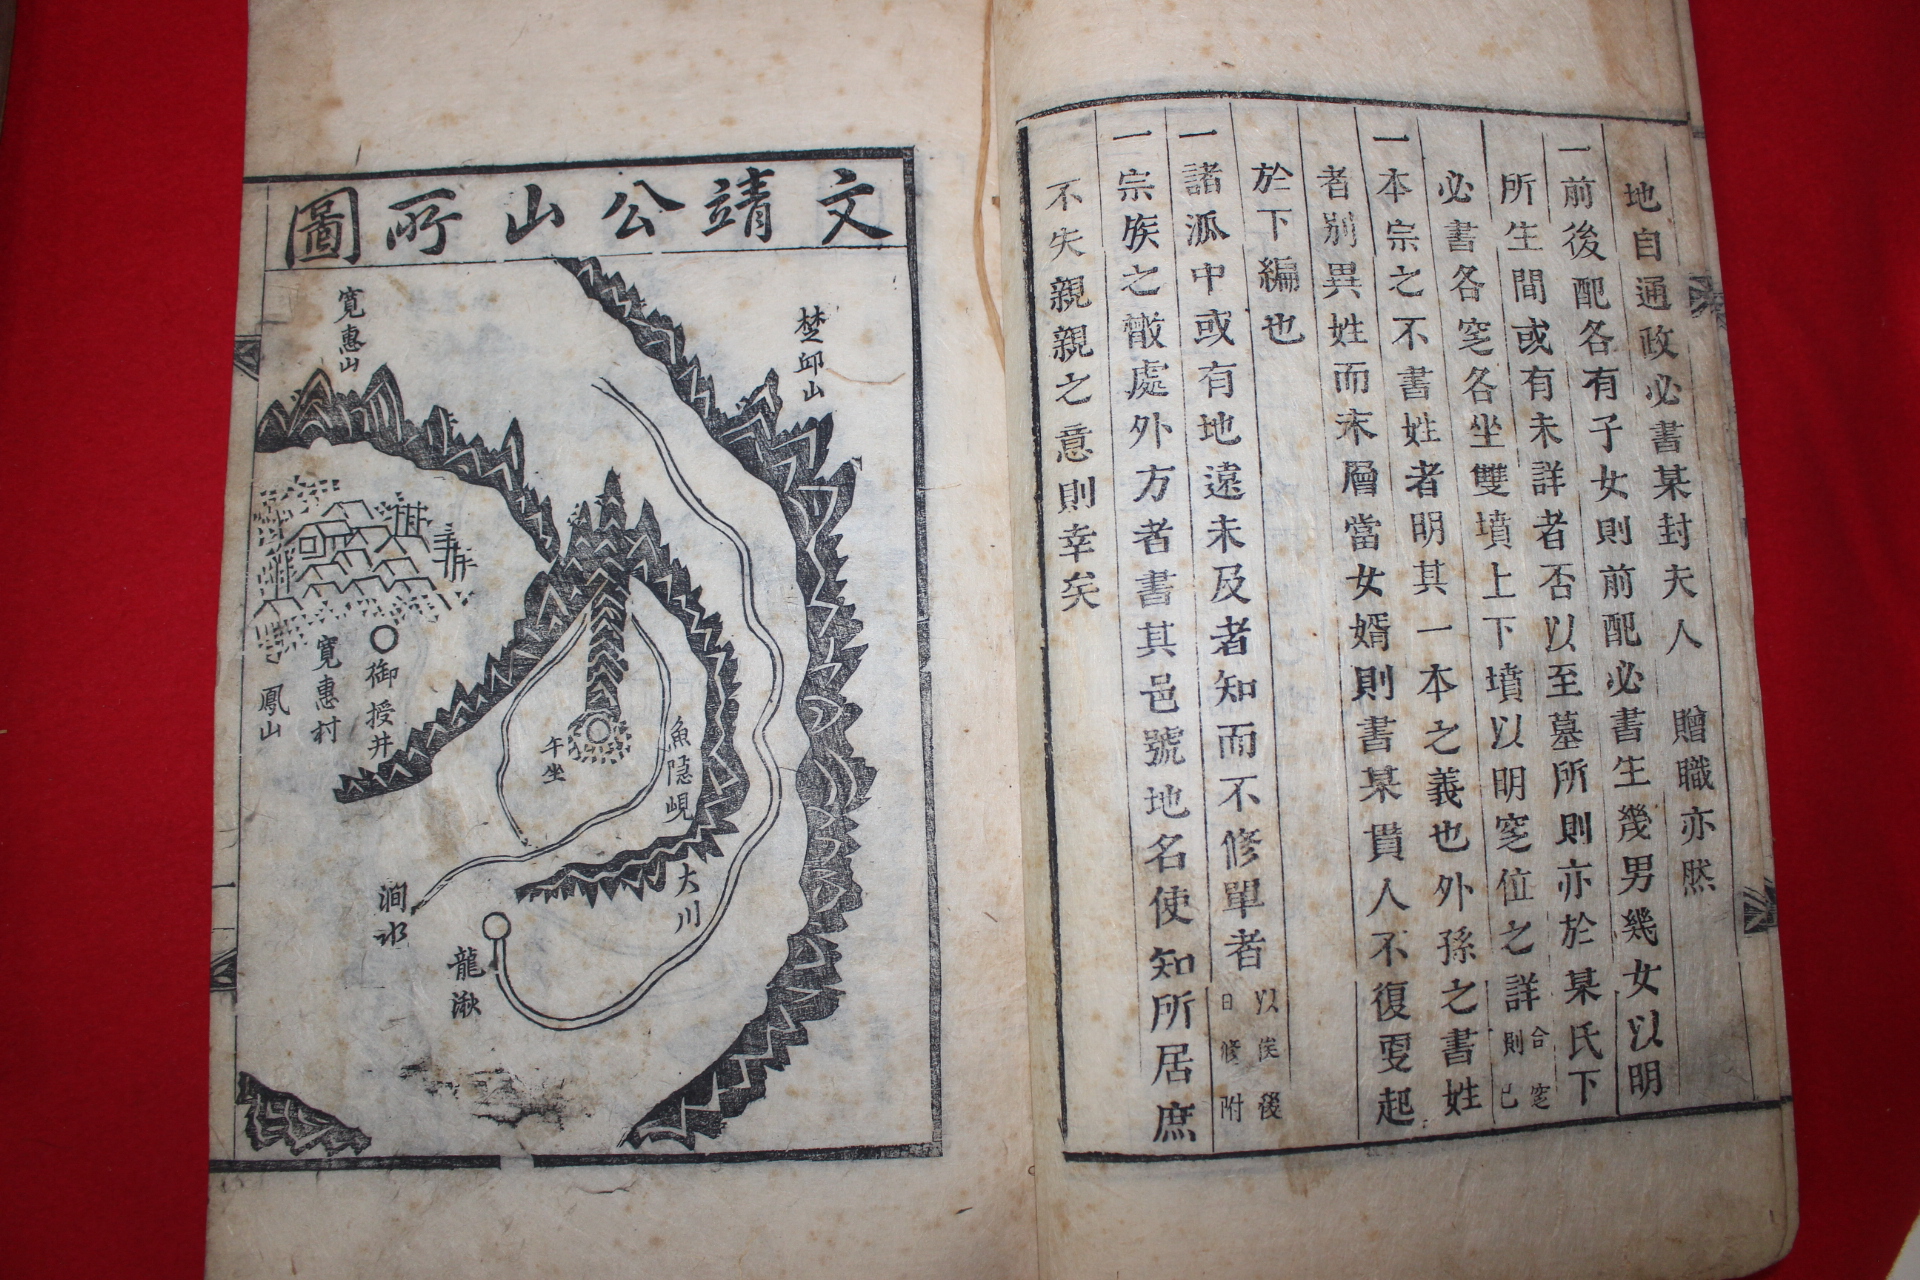 地自通政必書某封夫人 贈職亦然
一前後配各有子女則前配必書生幾男幾女以明
所生間或有未詳者否以至墓所則亦於某氏下
必書各窆各坐雙墳上下墳以明窆位之詳 合窆則已
一本宗之不書姓者明其一本之義也外孫之書姓
者別異姓而末層當女婿則書某貫人不復更起
於下編也
一諸派中或有地遠未及者知而不修單者 以俟後日修附
一宗族之散處外方者書其邑號地名使知所居庶
不失親親之意則幸矣
文靖公山所圖
楚邱山
寬惠山
魚隱峴
大川
午坐
御授井
寬惠村
鳳山
澗水
龍湫